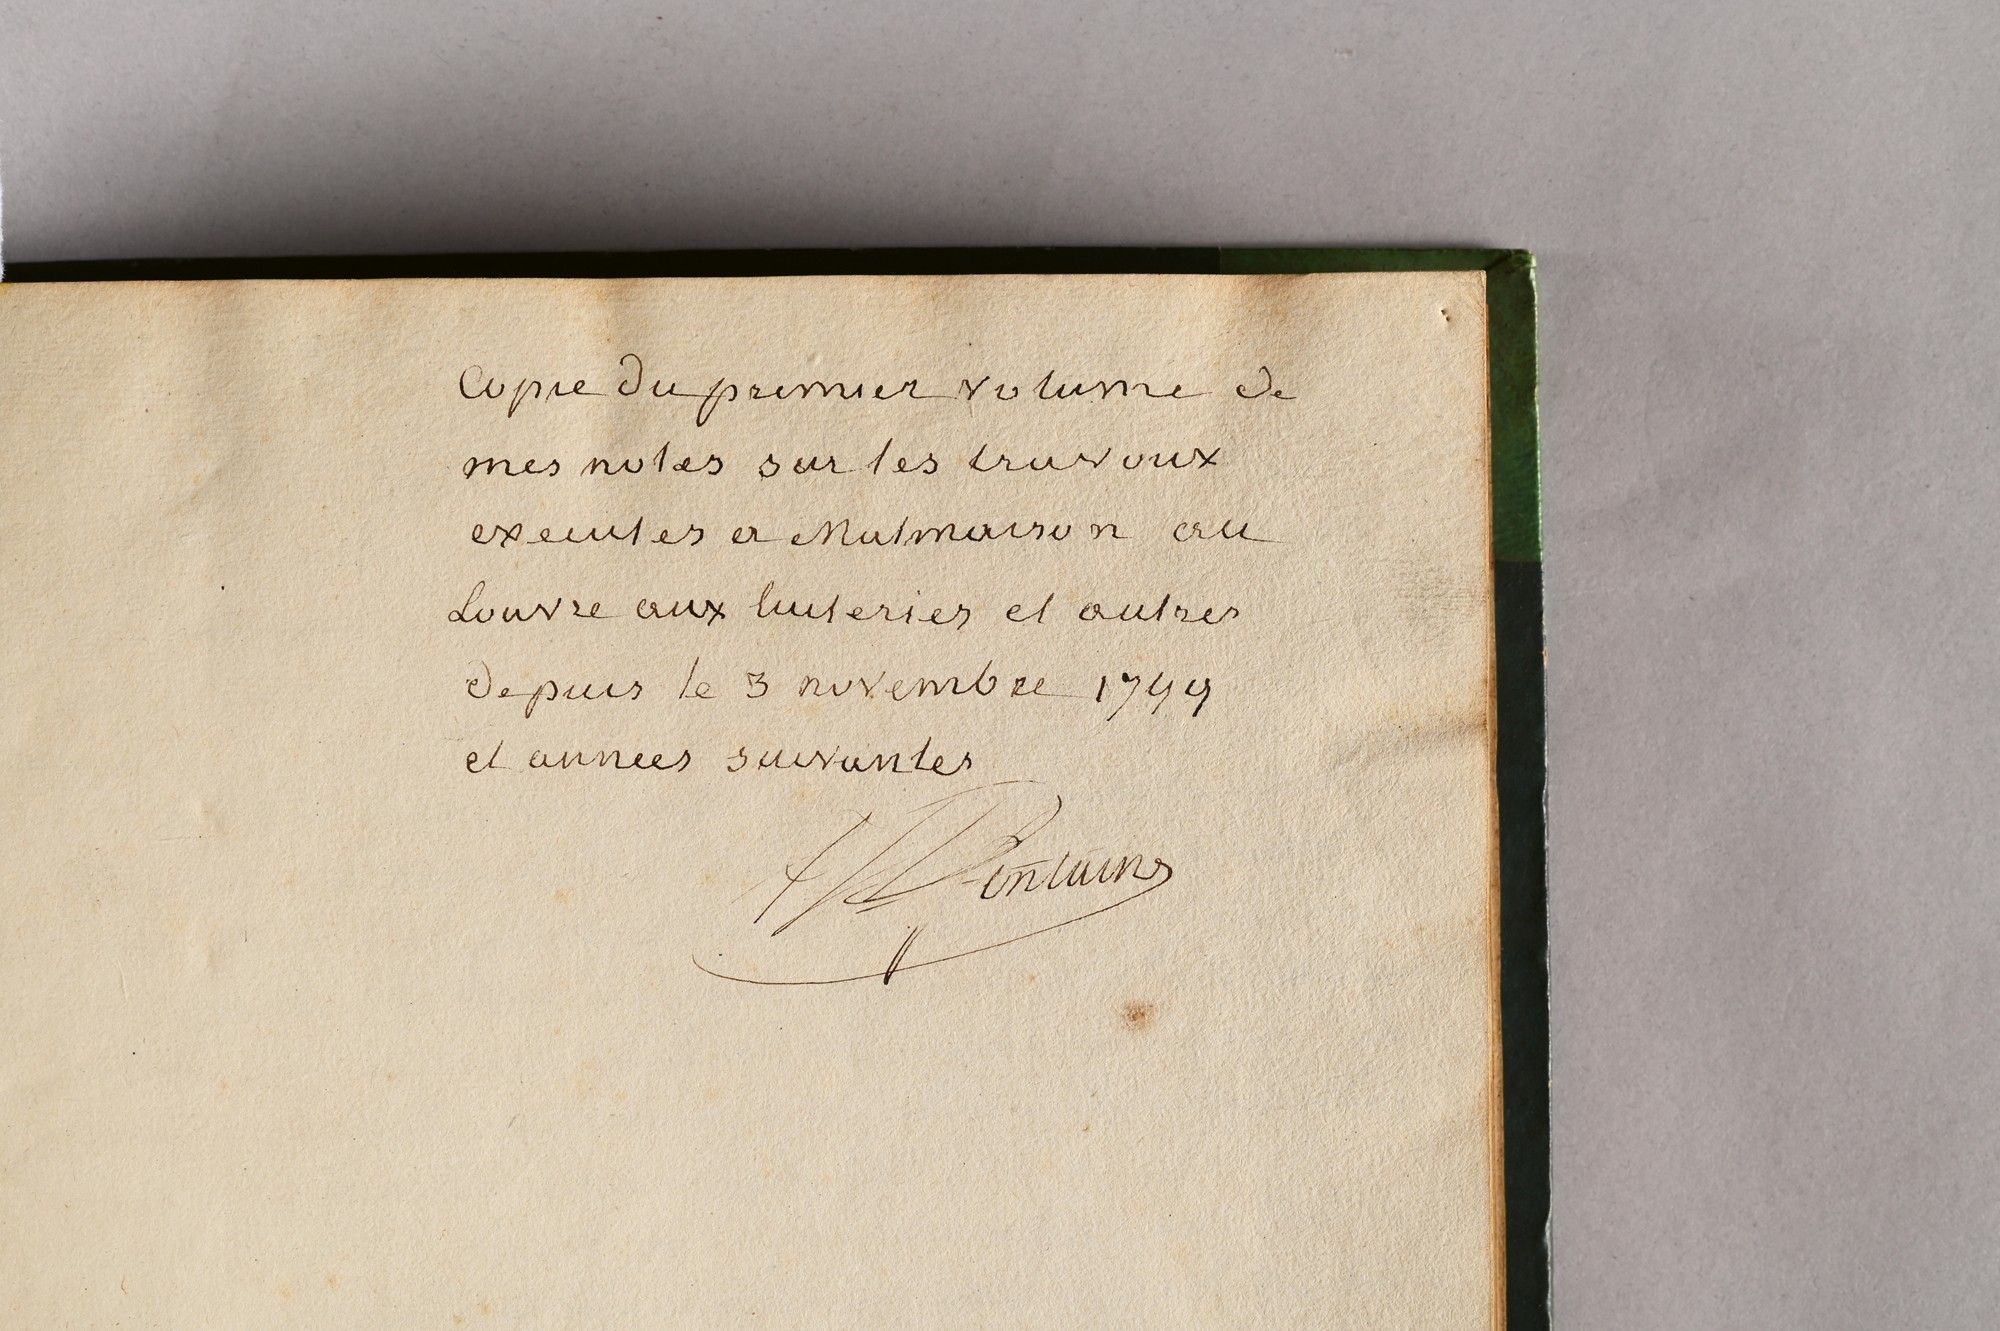 Copie du premier volume de
mes notes sur les travaux
executes a Malmaison au
Louvre aux tuileries et autres
depuis le 3 novembre 1799
et annees suivantes
Fontaine